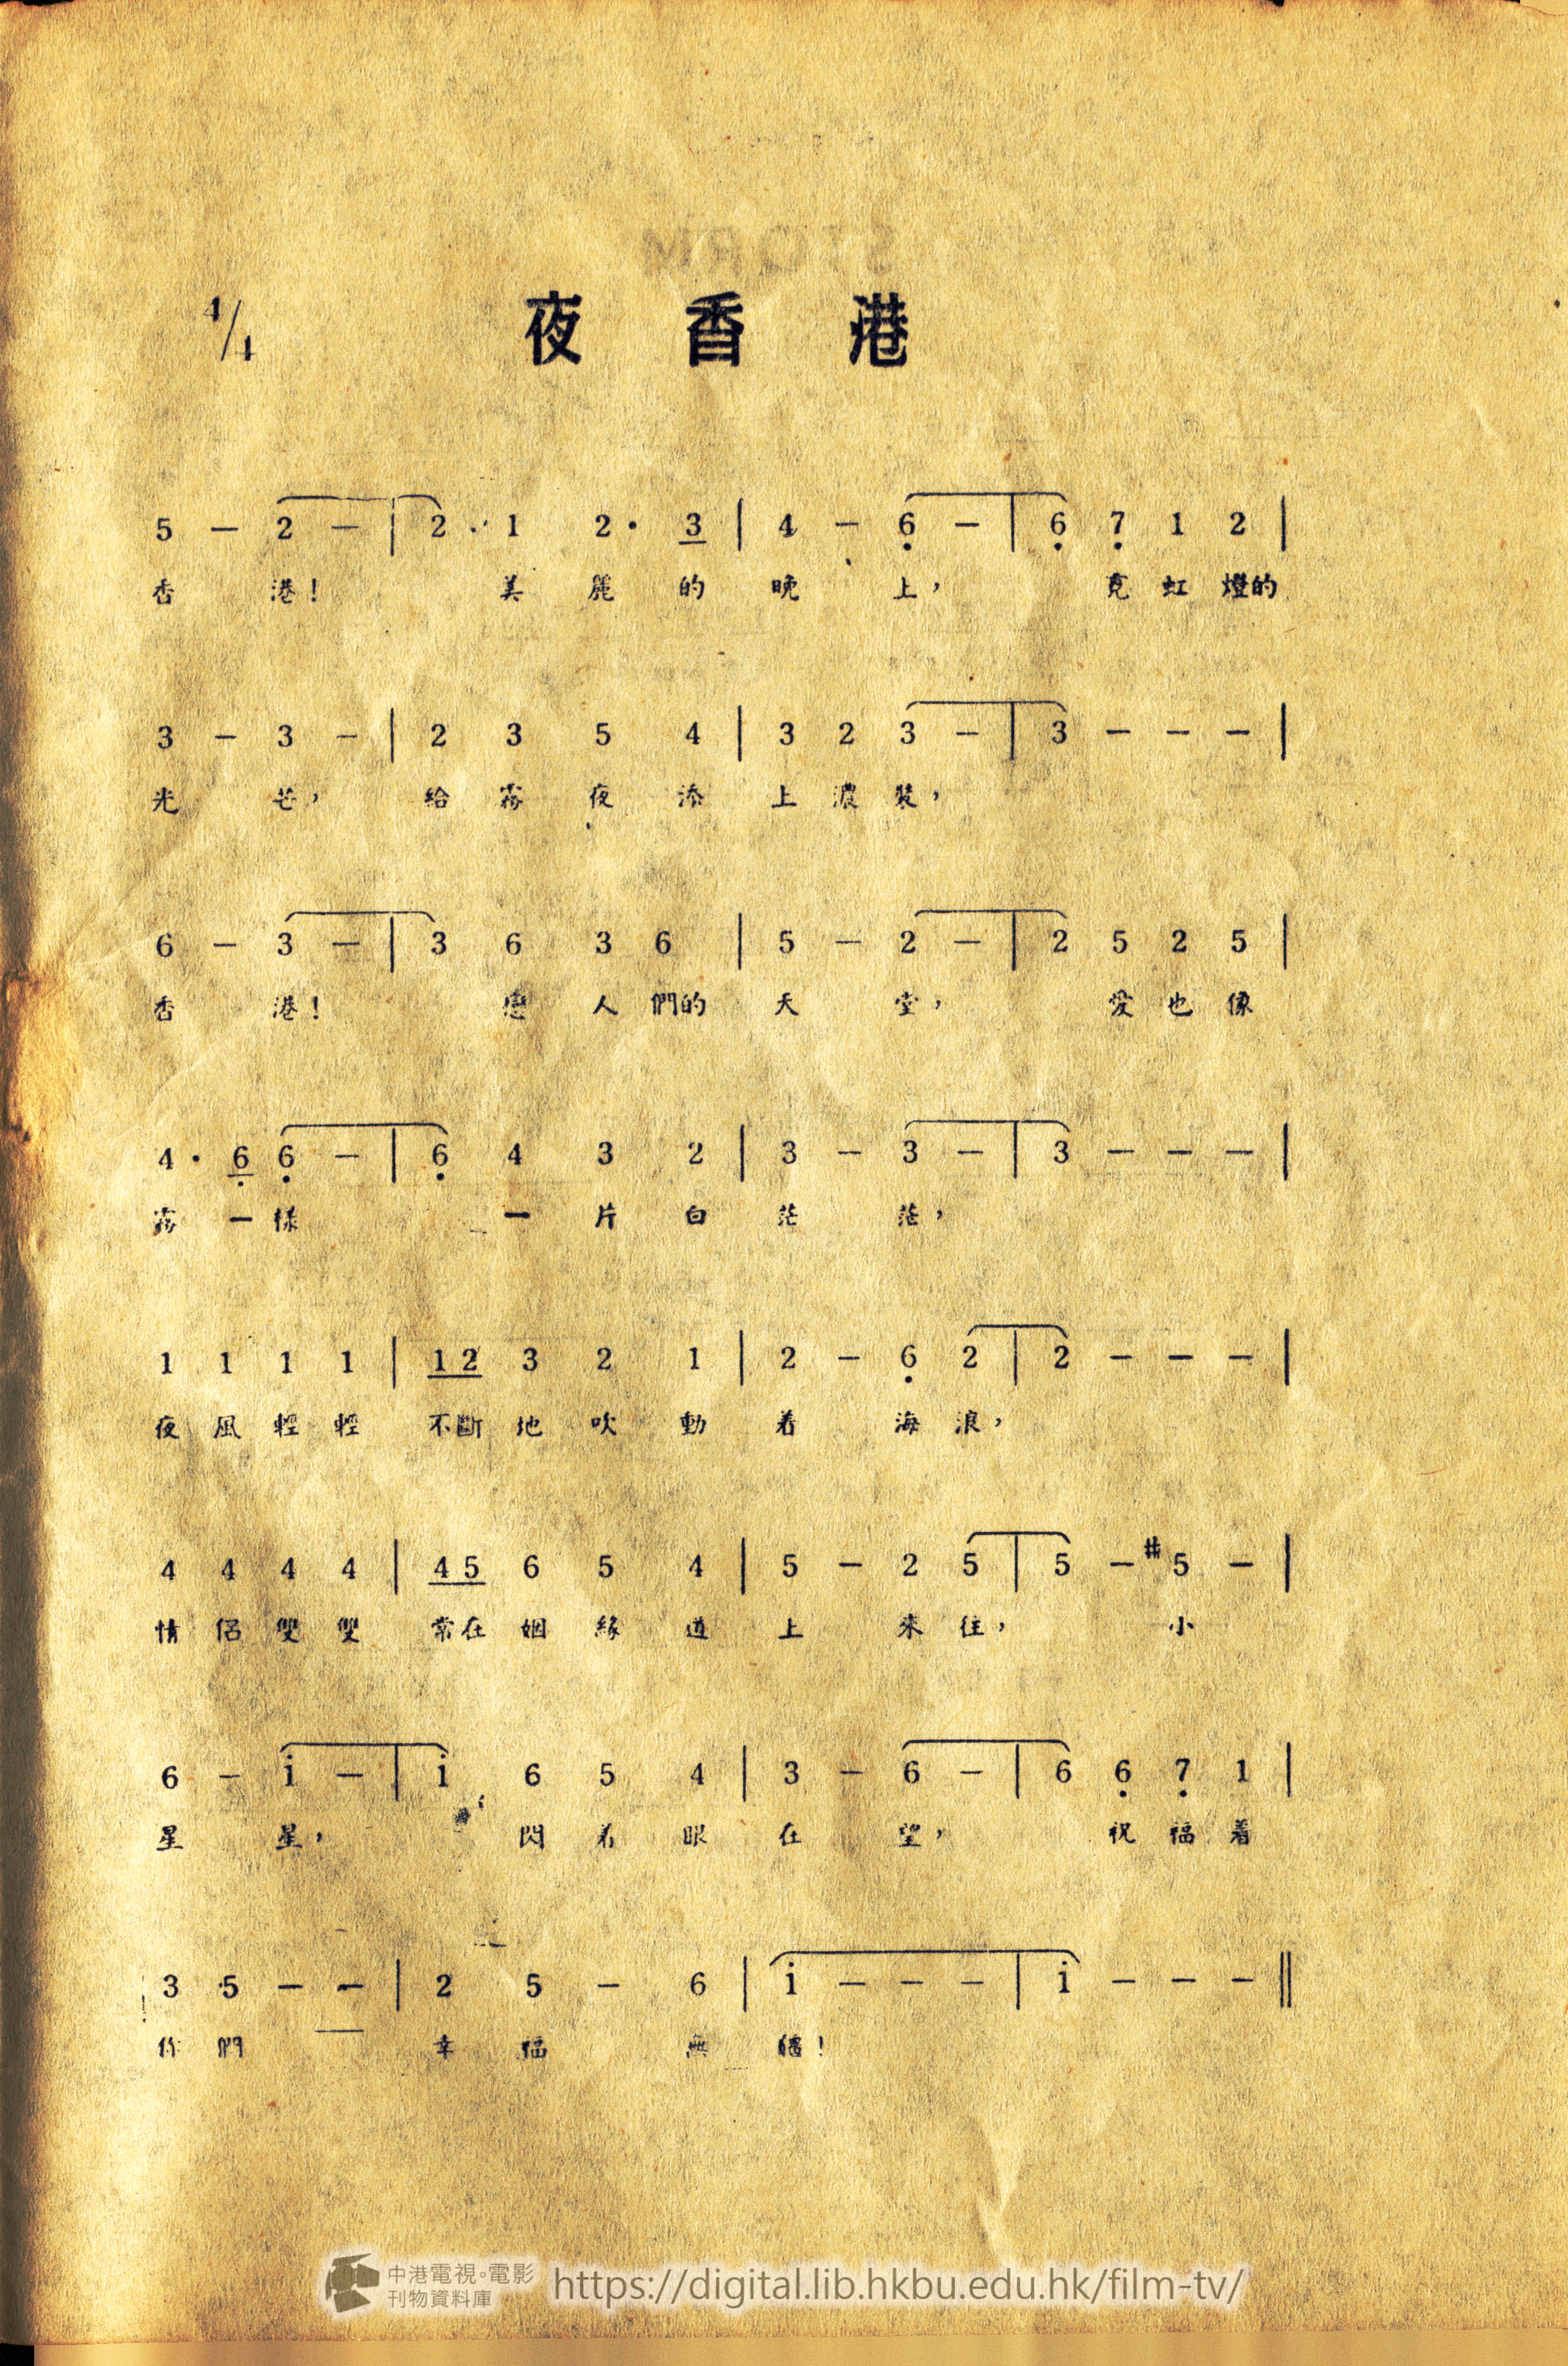 4/4 夜香港
5 — 2 — | 2 · 1 2 · 3 | 4 — 6 — | 6 7 1 2 |
香 港！ 美 麗 的 晚 上， 霓 虹 燈的
3 — 3 — | 2 3 5 4 | 3 2 3 — | 3 — — — |
光 芒， 給 霧 夜 添 上 濃 裝，
6 — 3 — | 3 6 3 6 | 5 — 2 — | 2 5 2 5 |
香 港！ 戀 人 們的 天 堂， 愛 也 像
4 · 6 6 — | 6 4 3 2 | 3 — 3 — | 3 — — — |
霧 一 樣 一 片 白 茫 茫，
1 1 1 1 | 1 2 3 2 1 | 2 — 6 2 | 2 — — — |
夜 風 輕 輕 不斷 地 吹 動 着 海 浪，
4 4 4 4 | 4 5 6 5 4 | 5 — 2 5 | 5 — #5 — |
情 侶 雙 雙 常在 姻 緣 道 上 來 往， 小
6 — i — | i 6 5 4 | 3 — 6 — | 6 6 7 1 |
星 星， 閃 着 眼 在 望， 祝 福 着
3 5 — — | 2 5 — 6 | i — — — | i — — — ‖
你 們 幸 福 無 疆！
中港電視。電影
刊物資料庫
https://digital.lib.hkbu.edu.hk/film-tv/